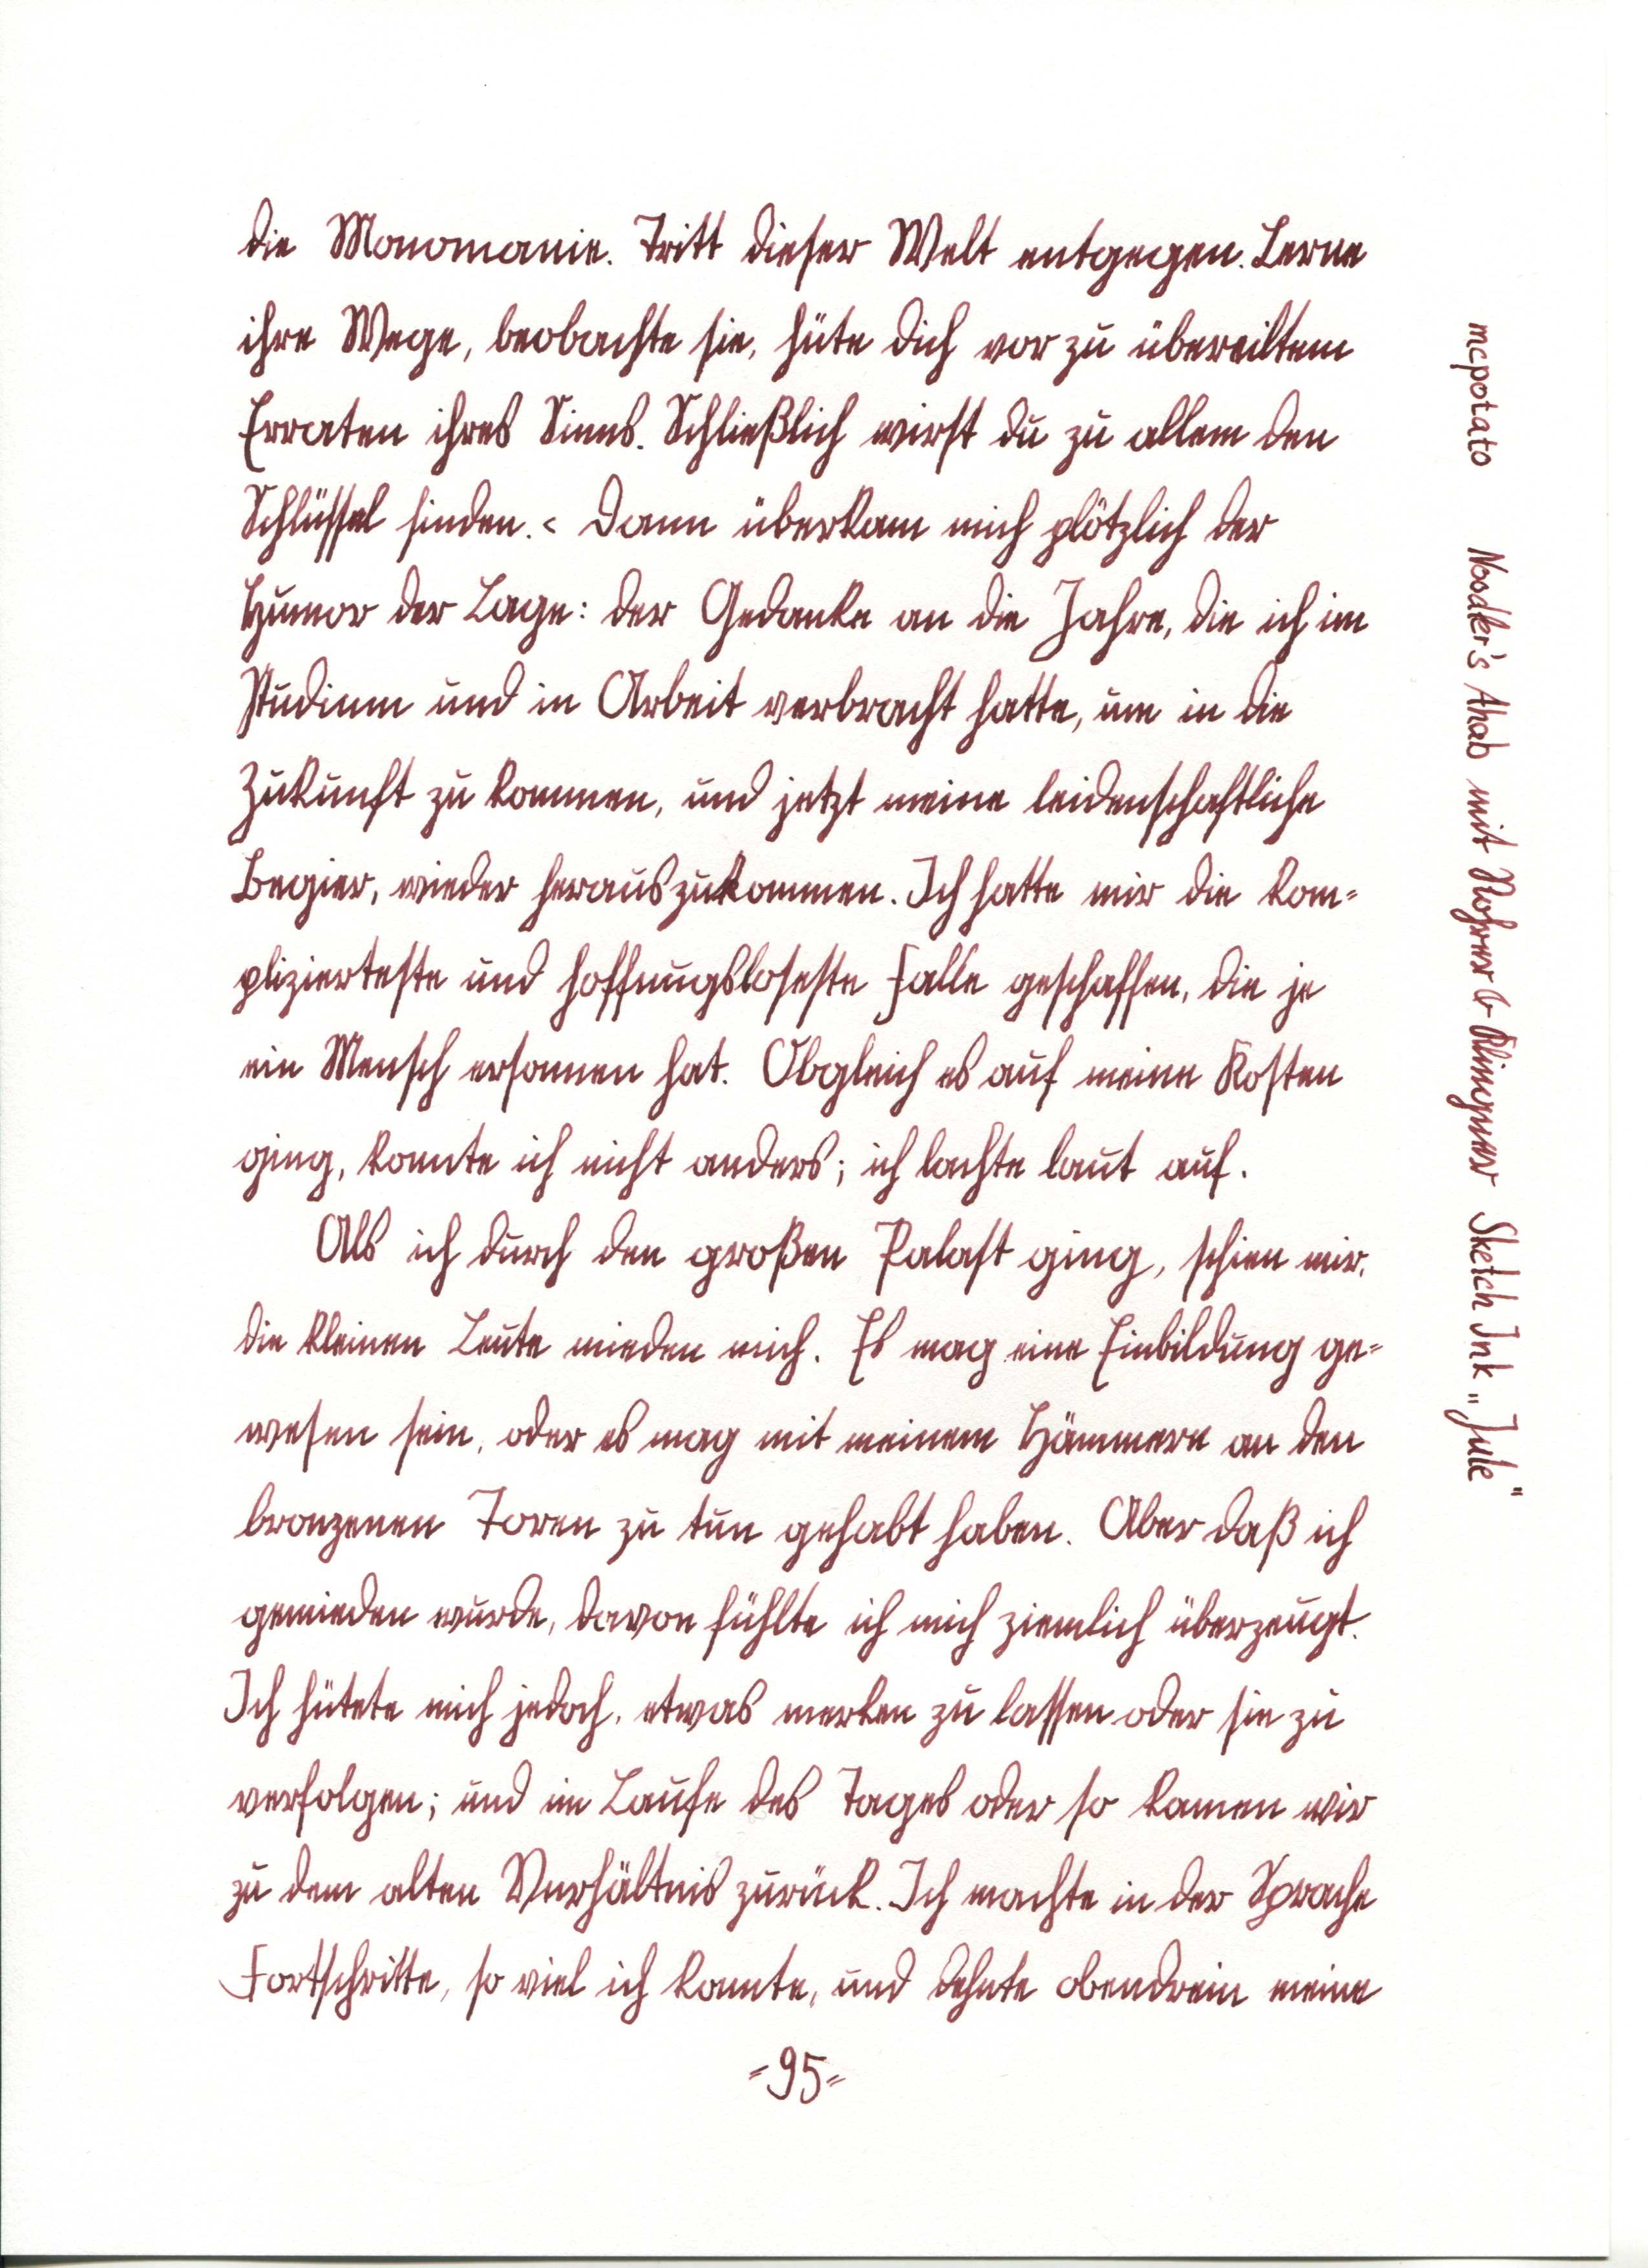 die Monomanie. Tritt dieser Welt entgegen. Lerne
ihre Wege, beobachte sie, hüte dich vor zu übereiltem
Erraten ihres Sinns. Schließlich wirst du zu allem den
Schlüssel finden.< Dann überkam mich plötzlich der
Humor der Lage: der Gedanke an die Jahre, die ich im
Studium und in Arbeit verbracht hatte, um in die
Zukunft zu kommen, und jetzt meine leidenschaftliche
Begier, wieder herauszukommen. Ich hatte mir die kom=
plizierteste und hoffnungsloseste Falle geschaffen, die je
ein Mensch ersonnen hat. Obgleich es auf meine Kosten
ging, konnte ich nicht anders; ich lachte laut auf.
Als ich durch den großen Palast ging, schien mir,
die kleinen Leute mieden mich. Es mag eine Einbildung ge=
wesen sein, oder es mag mit meinem Hämmern an den
bronzenen Toren zu tun gehabt haben. Aber daß ich
gemieden wurde, davon fühlte ich mich ziemlich überzeugt.
Ich hütete mich jedoch, etwas merken zu lassen oder sie zu
verfolgen; und im Laufe des Tages oder so kamen wir
zu dem alten Verhältnis zurück. Ich machte in der Sprache
Fortschritte, so viel ich konnte, und dehnte obendrein meine
=95=
mcpotato Noodler's Ahab mit Rohrer & Klingner Sketch Ink „Jule"